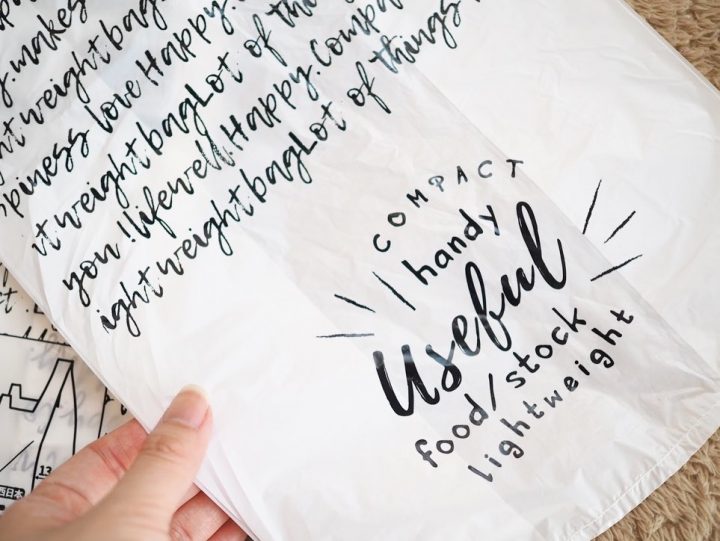 makes
ht weight bag
ppiness love Happy.
it weight bag Lot of th
you! lifewell. Happy. Compa
ightweight bag Lot of things
COMPACT
handy
Useful
food/stock
lightweight
13
西日本